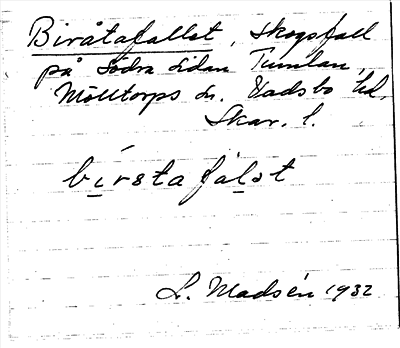 Biråtafallet, Skogsfall
på Södra sidan Tumlan,
Mölltorps sn. Vadsbo hd.
Skar. l.
bi̲rsta fal̲ət
L. Madsén 1932